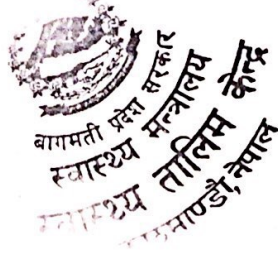 बागमती प्रदेश सरकार
स्वास्थ्य मन्त्रालय
स्वास्थ्य तालिम केन्द्र
काठमाण्डौ, नेपाल